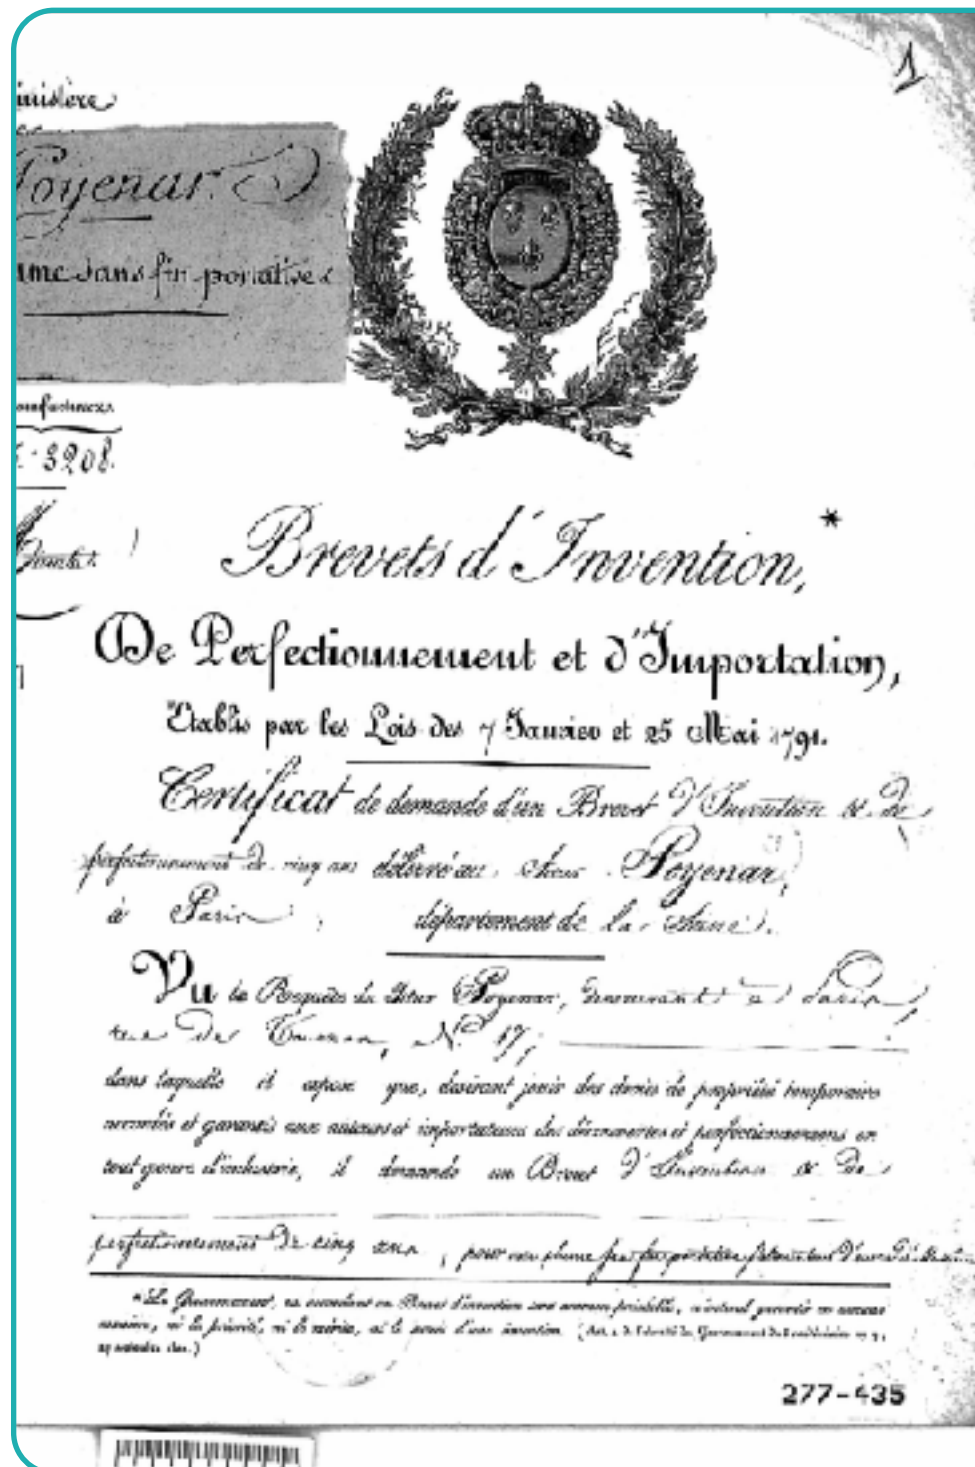 1
inistère
Poyenar.
ume sans fin portative
anufactures
3208.
Brevets d'Invention,*
De Perfectionnement et d'Importation,
Etablis par les Lois des 7 Janvier et 25 Mai 1791.
Certificat de demande d'un Brevet d'Invention & de
perfectionnement de cinq ans délivré au Sieur Poyenar,
à Paris, département de la Seine.
Vu la Requête du Sieur Poyenar, demeurant à Paris,
rue de N.° 17,
dans laquelle il expose que, désirant jouir des droits de propriété temporaire
accordés et garantis aux auteurs et importateurs des découvertes et perfectionnemens en
tout genre d'industrie, il demande un Brevet d'Invention & de
perfectionnement de cinq ans, pour une plume sans fin portative
* Le Gouvernement, en accordant un Brevet d'invention sans examen préalable, n'entend garantir en aucune
manière, ni la priorité, ni le mérite, ni le succès d'une invention.
277-435